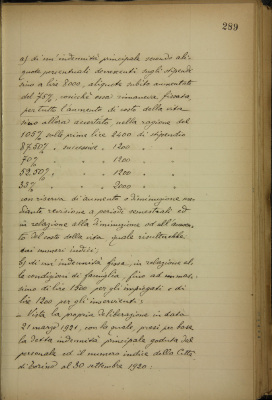 289
a) di un'indennità principale secondo ali-
quote percentuali decrescenti sugli stipendi
sino a lire 8000, aliquote subito aumentate
del 75%, cosichè essa rimaneva fissata,
per tutto l'aumento di costo della vita
sino allora accertato, nella ragione del
105% sulle prime lire 2400 di stipendio
87.50% " successive " 1200 " "
70% " " 1200 " "
52.50% " " 1200 " "
35% " " 2000 " "
con riserva di aumento o diminuzione me-
diante revisione a periodi semestrali ed
in relazione alla diminuzione od all'aumen-
to del costo della vita quale risulterebbe
dai numeri indici;
b) di un'indennità fissa, in relazione al-
le condizioni di famiglia fino ad un mas-
simo di lire 1500 per gli impiegati e di
lire 1200 per gli inservienti;
– Vista la propria deliberazione in data
21 marzo 1921, con la quale, presi per base
la detta indennità principale goduta dal
personale ed il numero indice della Città
di Torino al 30 settembre 1920